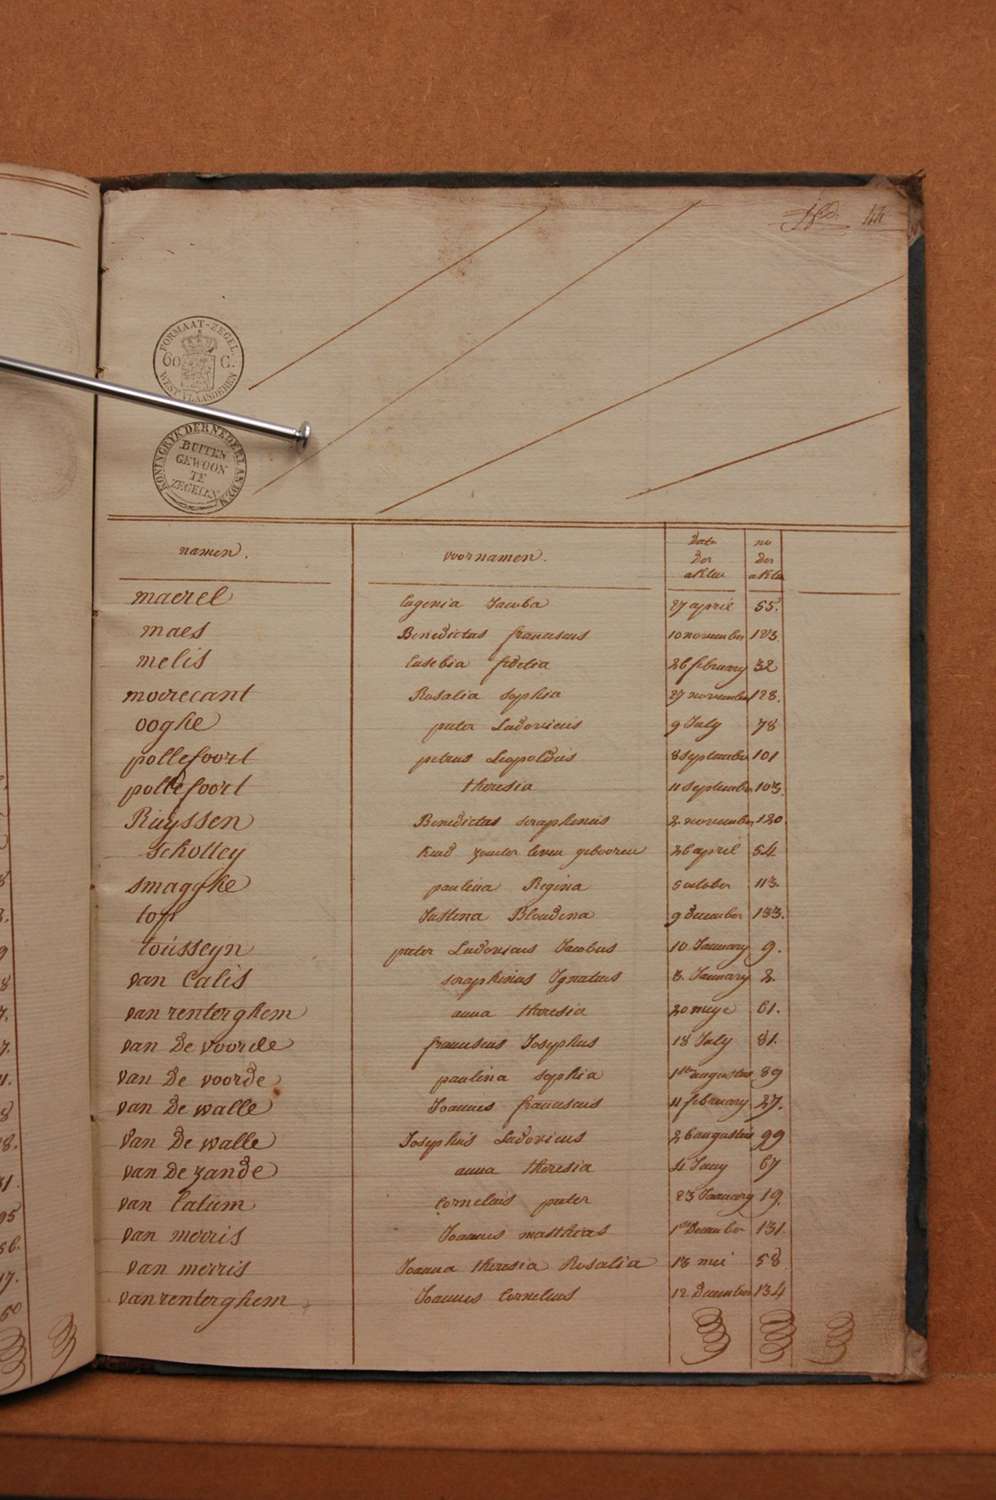 44
FORMAAT-ZEGEL
60 C.
WEST VLAANDEREN
KONINGRYK DER NEDERLANDEN
BUITEN
GEWOON
TE
ZEGELEN
namen. voornamen. Date der akten no der akte
maerel Eugenia Jacoba 27 april 55.
maes Benedictus franciscus 10 november 123.
melis Eusebia fidelia 26 february 32
moerecant Rosalia sophia 27 november 128.
ooghe pieter Ludovicus 9 July 78
pollefoort petrus Leopoldus 8 september 101
pollefoort theresia 11 september 103.
Ruyssen Benedictus seraphinus 2 november 120.
scholley kind zonder leven gebooren 26 april 54
smagghe paulina Regina 5 october 113.
top Justina Blondina 9 december 133.
toússeyn pieter Ludovicus Jacobus 10 January 9.
van Calis seraphinus Ignatius 3. January 2.
van renterghem anna theresia 20 meye 61.
van De voorde franciscus Josephus 18 July 81.
van De voorde paulina sophia 1ste augustus 89
van De walle Joannes franciscus 11 february 27.
van De walle Josephus Ludovicus 26 augustus 99
van De zande anna theresia 4 Juny 67
van Latum Cornelius pieter 23 January 19.
van merris Joannes matthias 1ste December 131.
van merris Joanna theresia Rosalia 18 mei 58
van renterghem Joannes Cornelius 12 December 134